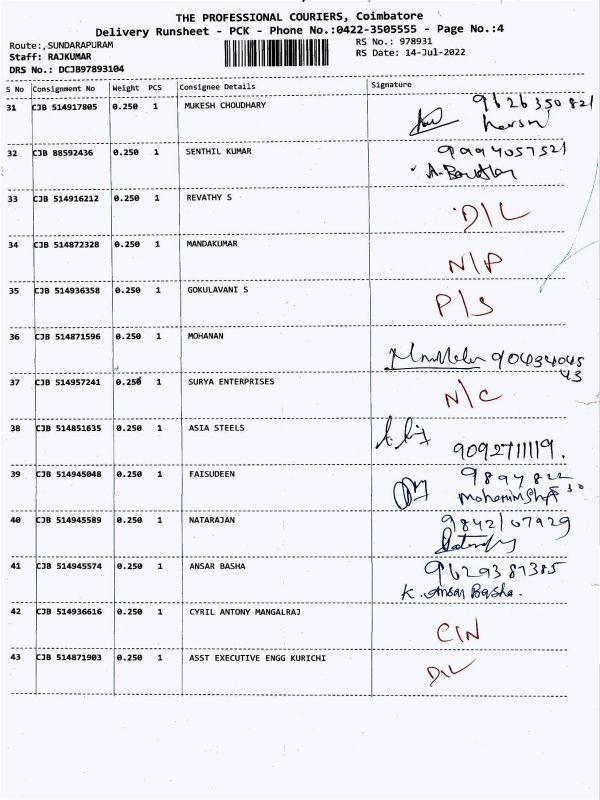 THE PROFESSIONAL COURIERS, Coimbatore
Delivery Runsheet - PCK - Phone No.:0422-3505555 - Page No.:4
Route:,SUNDARAPURAM
RS No.: 978931
Staff: RAJKUMAR
RS Date: 14-Jul-2022
DRS No.: DCJB97893104
S No Consignment No Weight PCS Consignee Details Signature
31 CJB 514917805 0.250 1 MUKESH CHOUDHARY 9626350821
32 CJB 88592436 0.250 1 SENTHIL KUMAR 9994057521
33 CJB 514916212 0.250 1 REVATHY S D/L
34 CJB 514872328 0.250 1 MANDAKUMAR N/P
35 CJB 514936358 0.250 1 GOKULAVANI S P/S
36 CJB 514871596 0.250 1 MOHANAN 90434045
43
37 CJB 514957241 0.250 1 SURYA ENTERPRISES N/C
38 CJB 514851635 0.250 1 ASIA STEELS
9092711119.
39 CJB 514945048 0.250 1 FAISUDEEN 9894822
530
40 CJB 514945589 0.250 1 NATARAJAN 9842107929
41 CJB 514945574 0.250 1 ANSAR BASHA 9629387385
K. Ansar Basha.
42 CJB 514936616 0.250 1 CYRIL ANTONY MANGALRAJ C/N
43 CJB 514871903 0.250 1 ASST EXECUTIVE ENGG KURICHI D/L